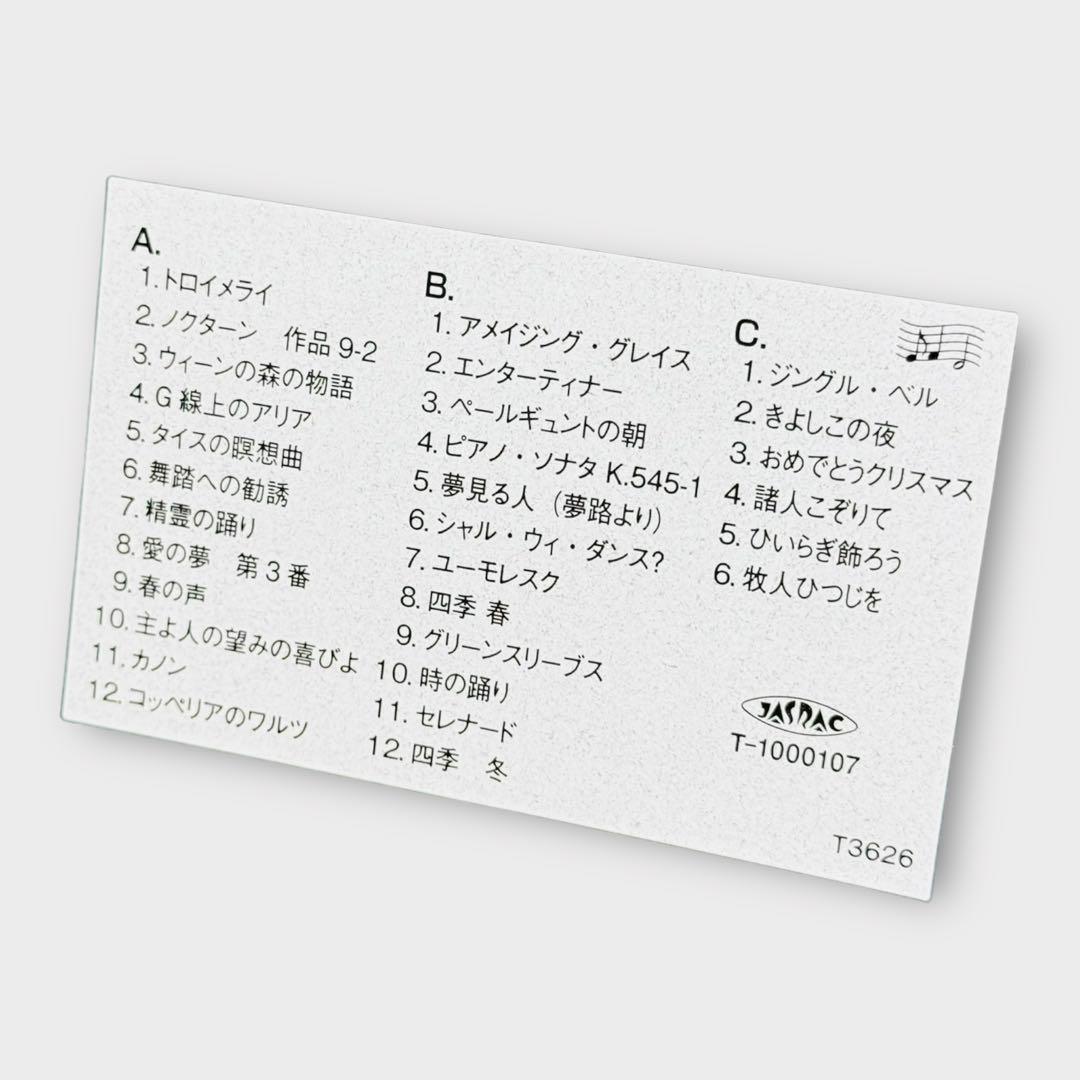 A.
1. トロイメライ
2. ノクターン　作品 9-2
3. ウィーンの森の物語
4. G 線上のアリア
5. タイスの瞑想曲
6. 舞踏への勧誘
7. 精霊の踊り
8. 愛の夢　第 3 番
9. 春の声
10. 主よ人の望みの喜びよ
11. カノン
12. コッペリアのワルツ
B.
1. アメイジング・グレイス
2. エンターティナー
3. ペールギュントの朝
4. ピアノ・ソナタ K.545-1
5. 夢見る人（夢路より）
6. シャル・ウィ・ダンス?
7. ユーモレスク
8. 四季 春
9. グリーンスリーブス
10. 時の踊り
11. セレナード
12. 四季　冬
C.
1. ジングル・ベル
2. きよしこの夜
3. おめでとうクリスマス
4. 諸人こぞりて
5. ひいらぎ飾ろう
6. 牧人ひつじを
JASRAC
T-1000107
T3626